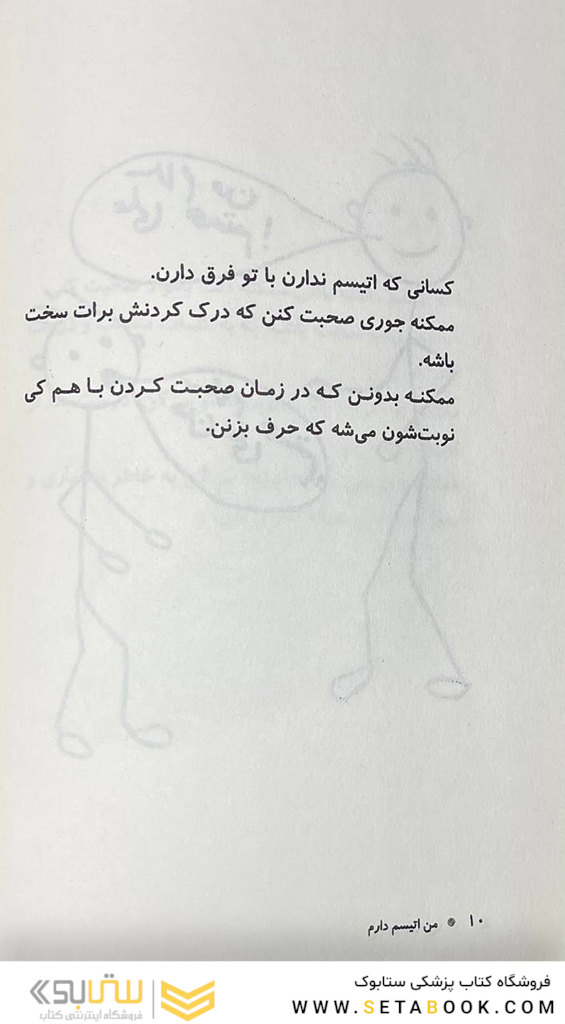 کسانی که اتیسم ندارن با تو فرق دارن.
ممکنه جوری صحبت کنن که درک کردنش برات سخت
باشه.
ممکنه بدونن که در زمان صحبت کردن با هم کی
نوبت‌شون می‌شه که حرف بزنن.
۱۰ ● من اتیسم دارم
فروشگاه کتاب پزشکی ستابوک
WWW.SETABOOK.COM
ستابوک
فروشگاه اینترنتی کتاب